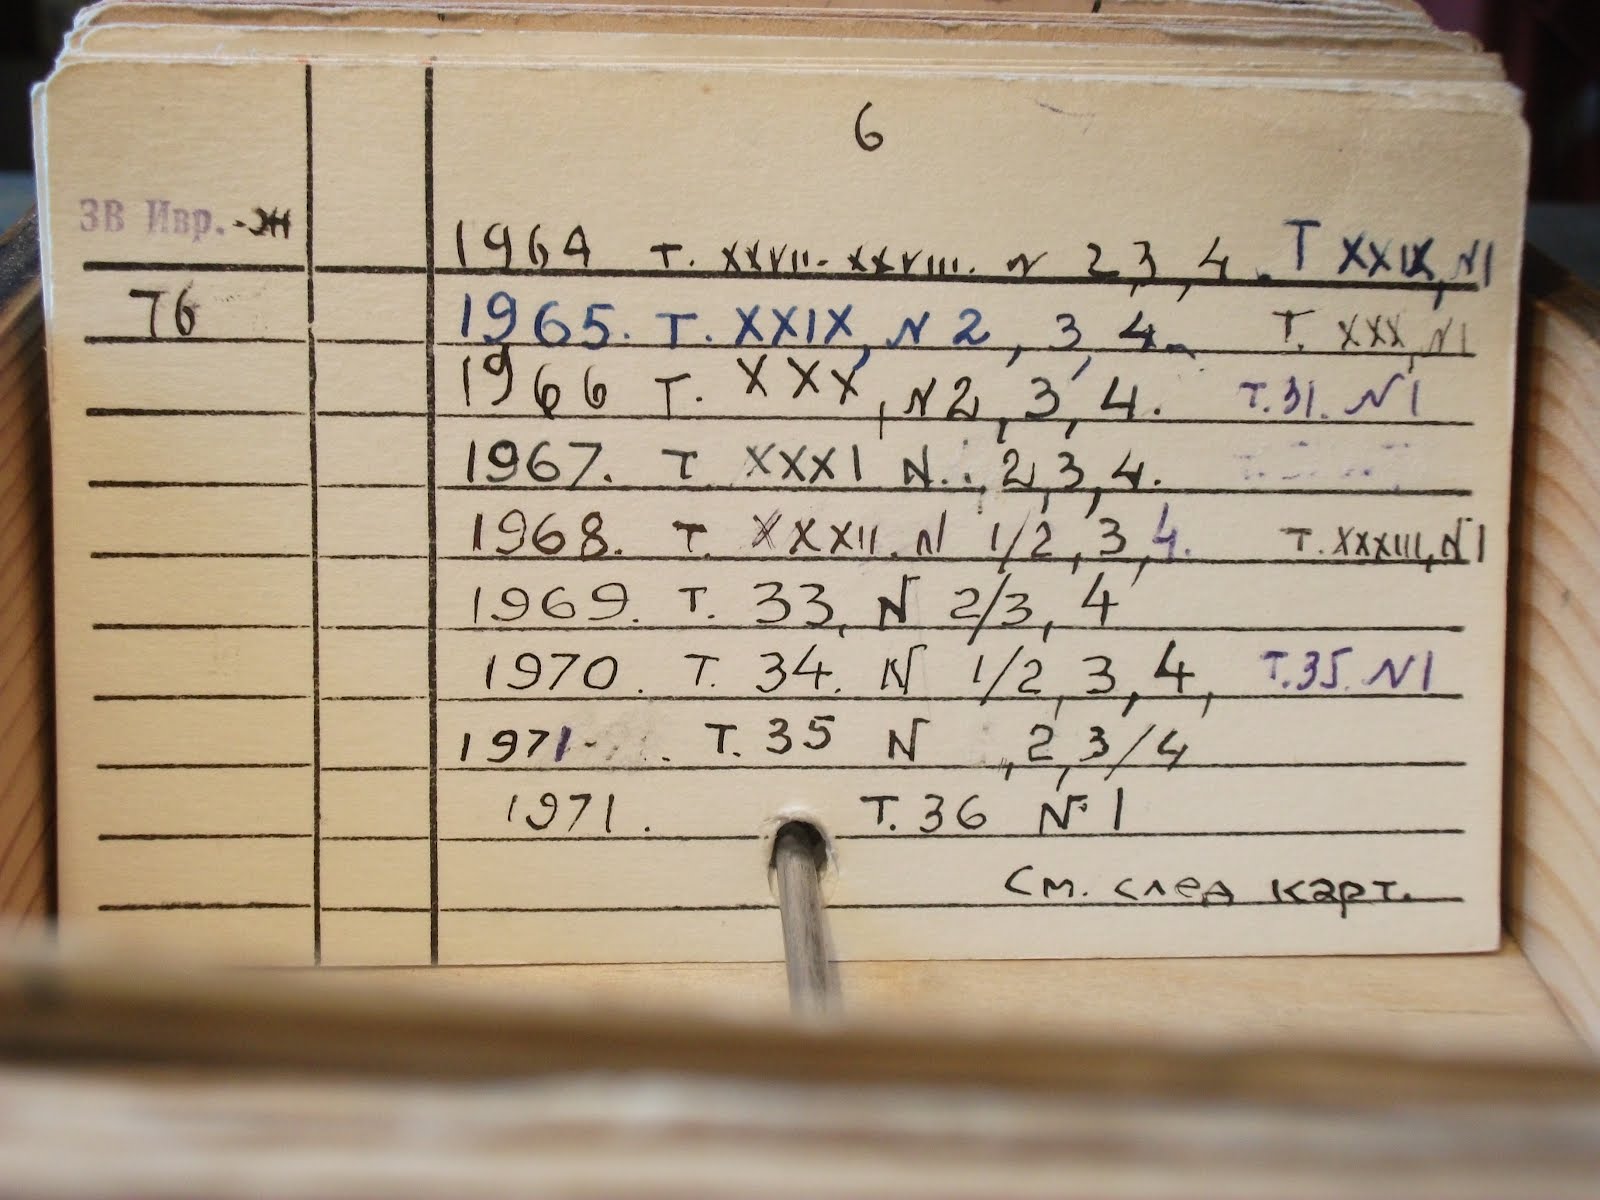 6
ЗВ Ивр.-Ж
1964 Т. XXVII-XXVIII. N 2,3,4. Т XXIX, N1
76
1965. Т. XXIX, N 2, 3, 4. Т. XXX, N1
1966 Т. XXX, N2, 3, 4. Т.31. N1
1967. Т XXXI N. 2,3,4.
1968. Т. XXXII. N 1/2, 3,4. Т. XXXIII, N1
1969. Т. 33, N 2/3, 4
1970. Т. 34. N 1/2, 3, 4, Т.35. N1
1971. Т. 35 N ,2,3/4
1971. Т. 36 N 1
См. след карт.